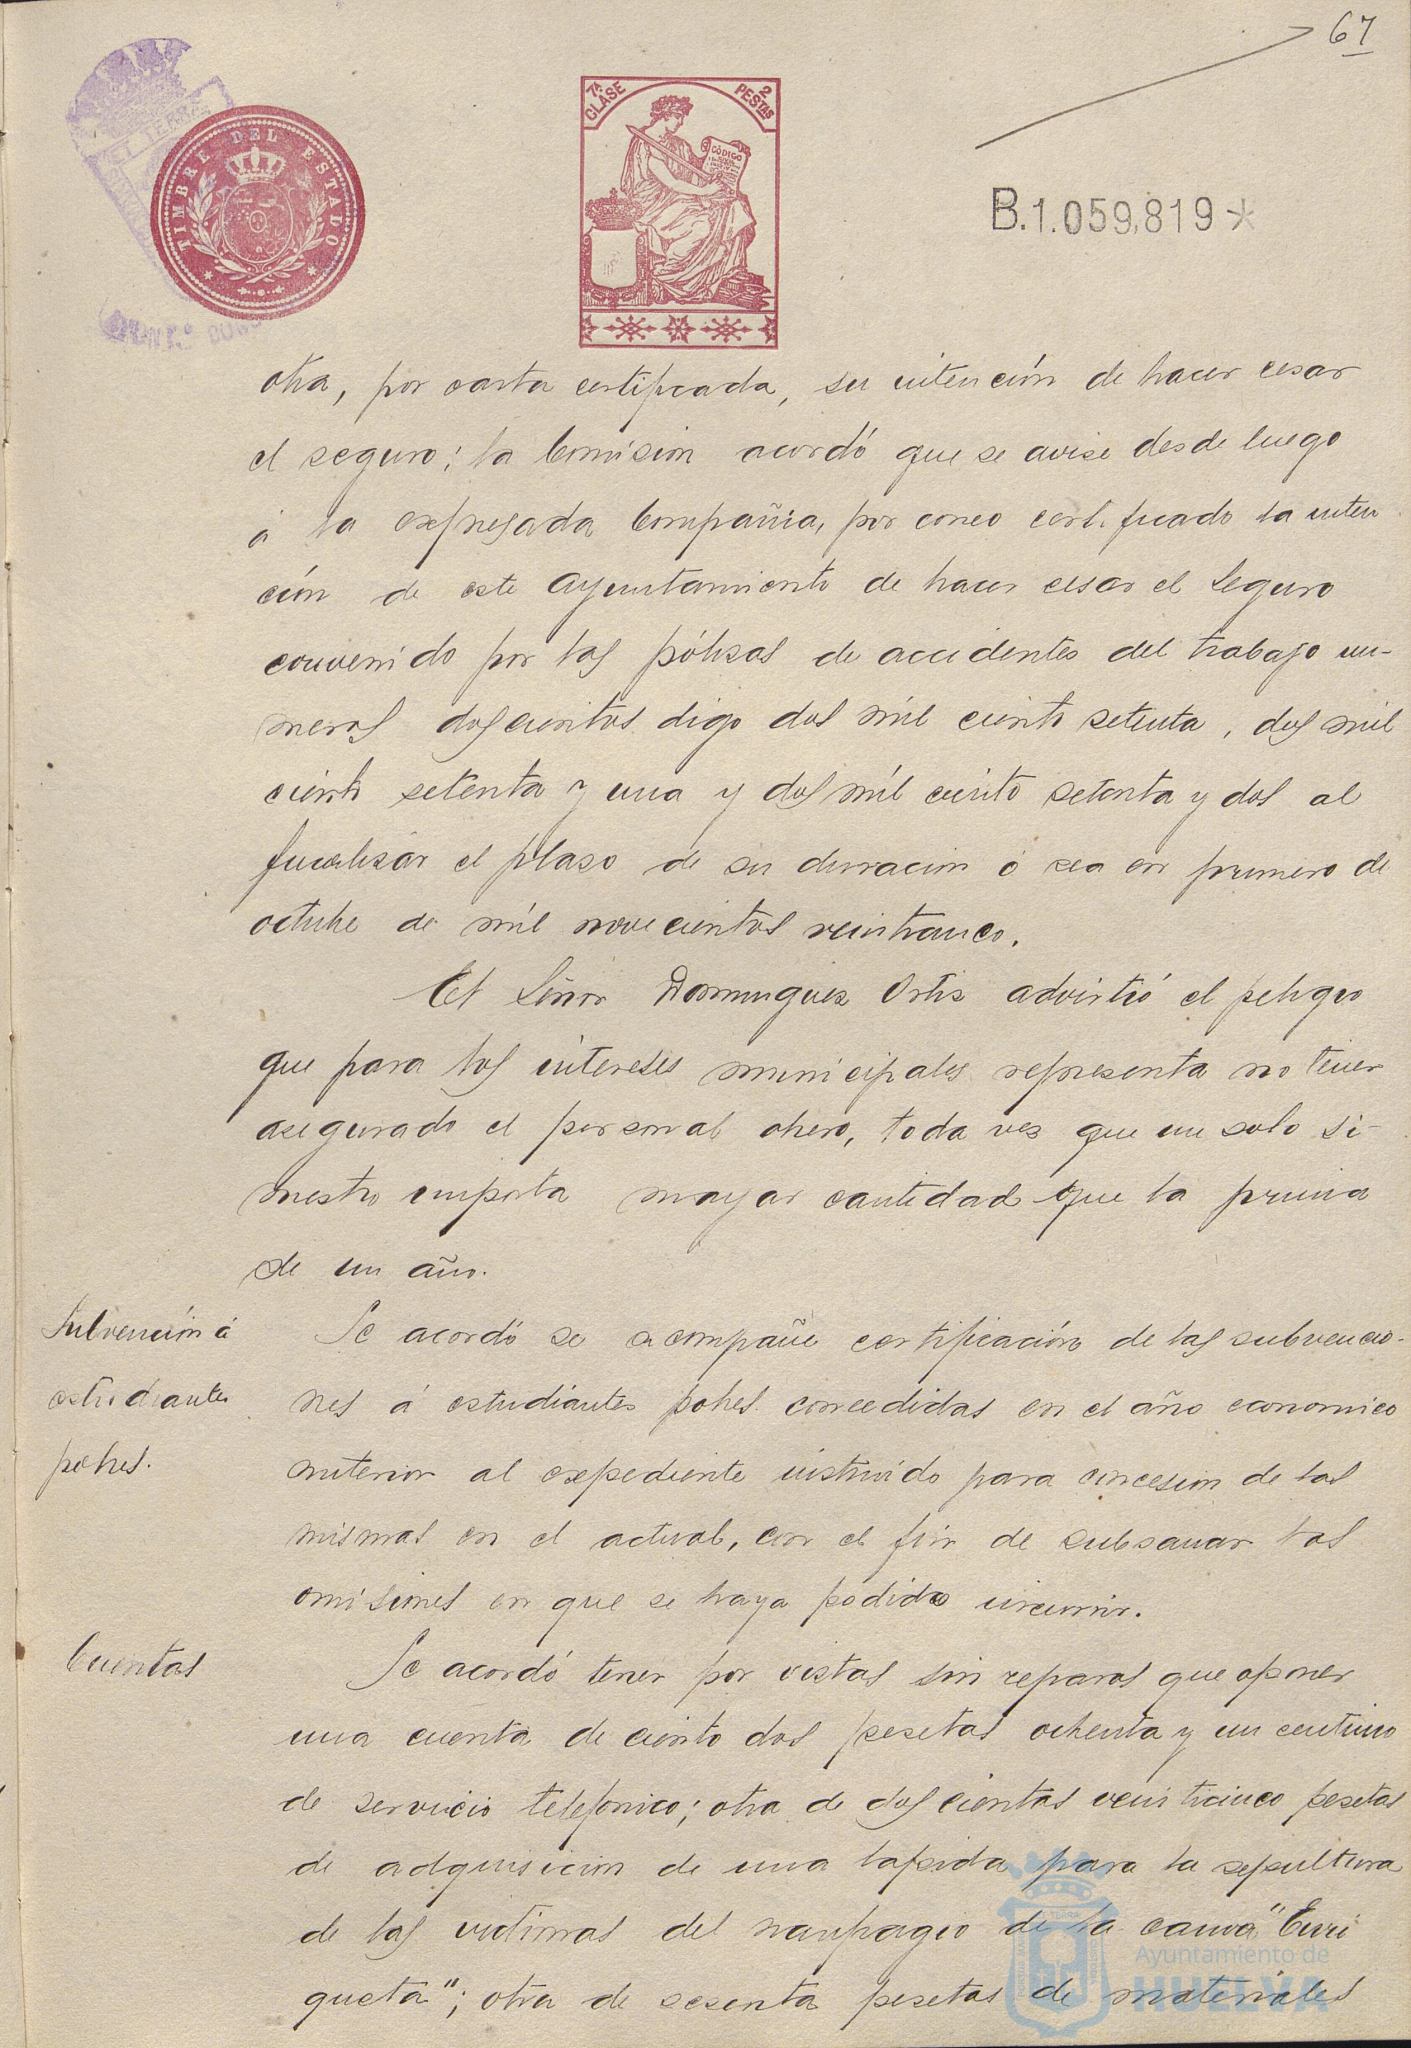 67
TIMBRE DEL ESTADO
7ª CLASE
2 PESTAS
CÓDIGO
B.1.059,819*
otra, por carta certificada, su intención de hacer cesar
el seguro; la Comisión acordó que se avise desde luego
á la expresada Compañia, por correo certificado la inten
ción de este Ayuntamiento de hacer cesar el seguro
convenido por las pólisas de accidentes del trabajo nu-
meros doscientos digo dos mil ciento setenta, dos mil
ciento setenta y una y dos mil ciento setenta y dos al
finalisar el plaso de su duración ó sea en primero de
octubre de mil novecientos veinticinco.
El Señor Dominguez Ortiz advirtió el peligro
que para los intereses municipales representa no tener
asegurado el personal obrero, toda vez que un solo si-
niestro importa mayor cantidad que la prima
de un año.
Subvención á
estudiantes
pobres.
Se acordó se acompañe certificación de las subvencio-
nes á estudiantes pobres concedidas en el año economico
anterior al expediente instruido para concesion de las
mismas en el actual, con el fin de subsanar las
omisiones en que se haya podido incurrir.
Cuentas
Se acordó tener por vistas sin reparos que oponer
una cuenta de ciento dos pesetas ochenta y un centimo
de servicio telefonico; otra de doscientas veinticinco pesetas
de adquisicion de una lapida para la sepultura
de las victimas del naufragio de la canoa "Enri
queta"; otra de sesenta pesetas de materiales
Ayuntamiento de
HUELVA